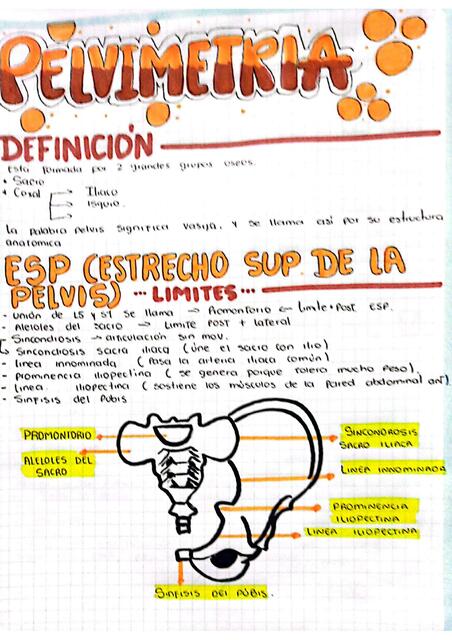 PELVIMETRIA
DEFINICIÓN
Esta formada por 2 grandes grupos oseos.
• Sacro
• Coxal → Iliaco
→ Isquio.
→
la palabra pelvis significa vasija, y se llama así por su estructura
anatomica
ESP (ESTRECHO SUP. DE LA
PELVIS) ... LIMITES ...
- Unión de L5 y S1 se llama → Promontorio ← limite post ESP.
- Aleloles del sacro → Limite post + lateral
- Sincondiosis → articulación sin mov.
↳ Sincondiosis sacra iliaca (úne el sacro con ilio)
- linea innominada (Pasa la arteria iliaca común)
- prominencia iliopectina (se genera porque tolera mucho peso)
- linea iliopectina (sostiene los músculos de la pared abdominal ant)
- Sinfisis del pubis
PROMONTORIO
ALELOLES DEL
SACRO
SINCONDROSIS
SACRO ILIACA
LINEA INNOMINADA
PROMINENCIA
ILIOPECTINA
LINEA ILIOPECTINA
SINFISIS DEL PÚBIS.